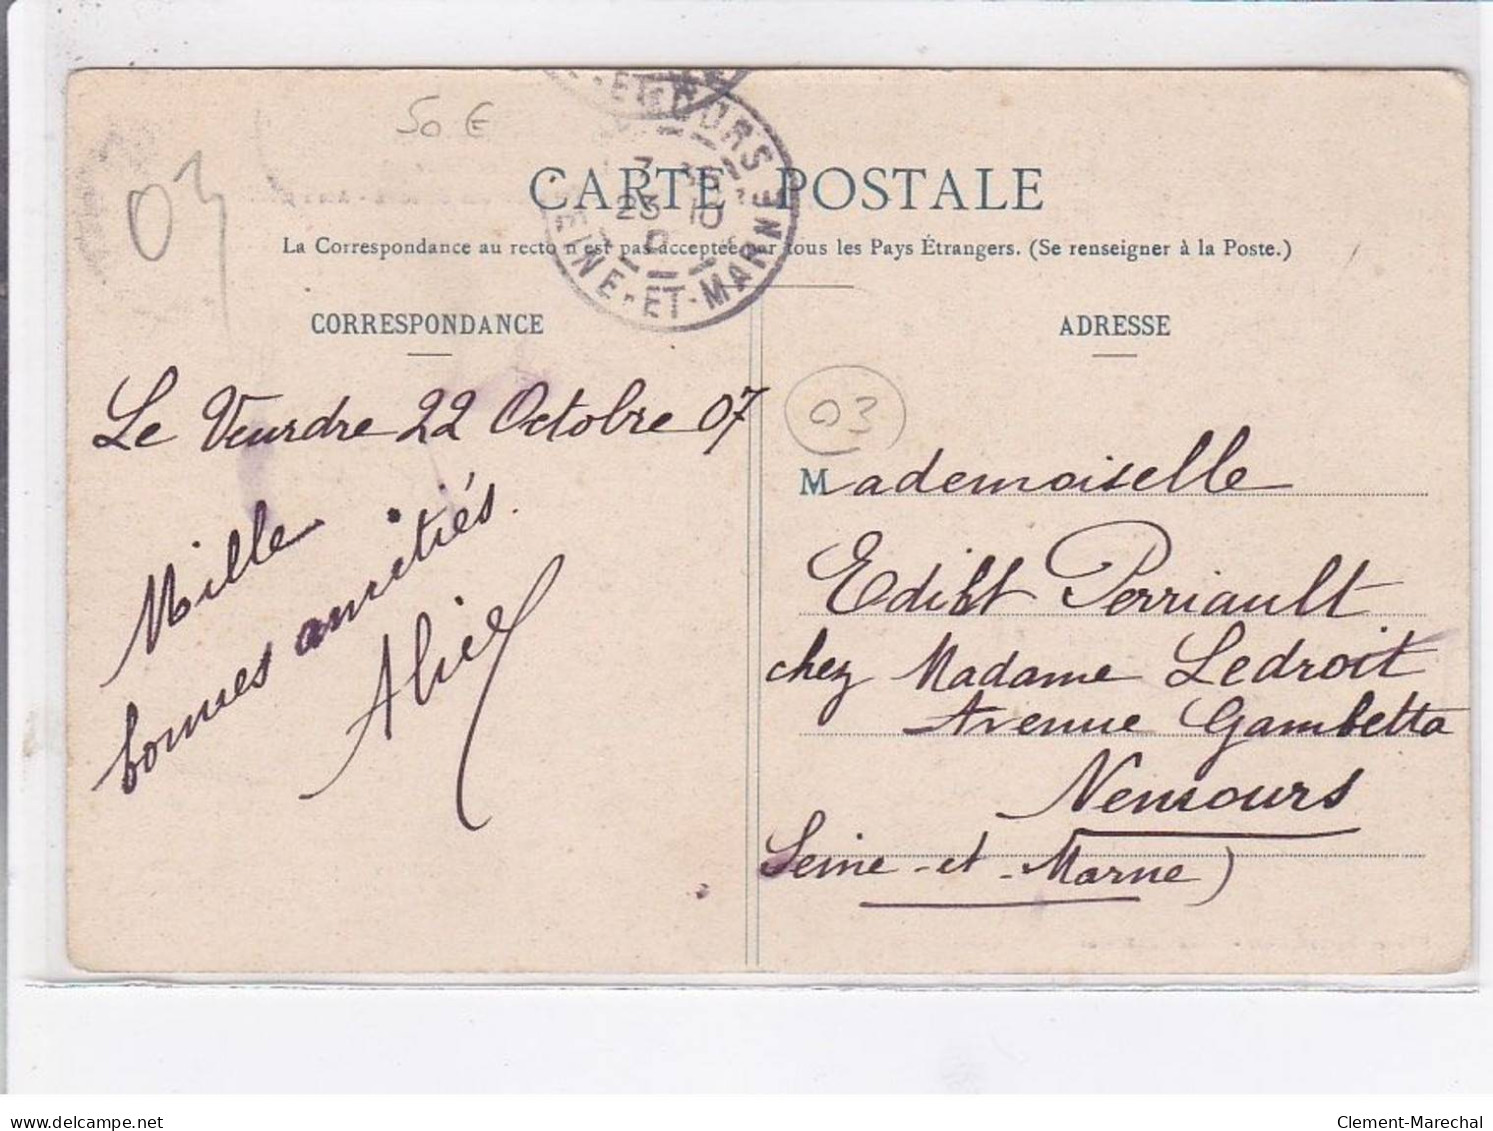 50 E
03
CARTE POSTALE
La Correspondance au recto n'est pas acceptée par tous les Pays Étrangers. (Se renseigner à la Poste.)
CORRESPONDANCE
Le Veurdre 22 Octobre 07
Mille
bonnes amitiés.
ADRESSE
03
Mademoiselle
Edith Perriault
chez Madame Ledroit
Avenue Gambetta
Nemours
Seine-et-Marne)
23 10
EINE-ET-MARNE
delcampe.net
Clement-Marechal